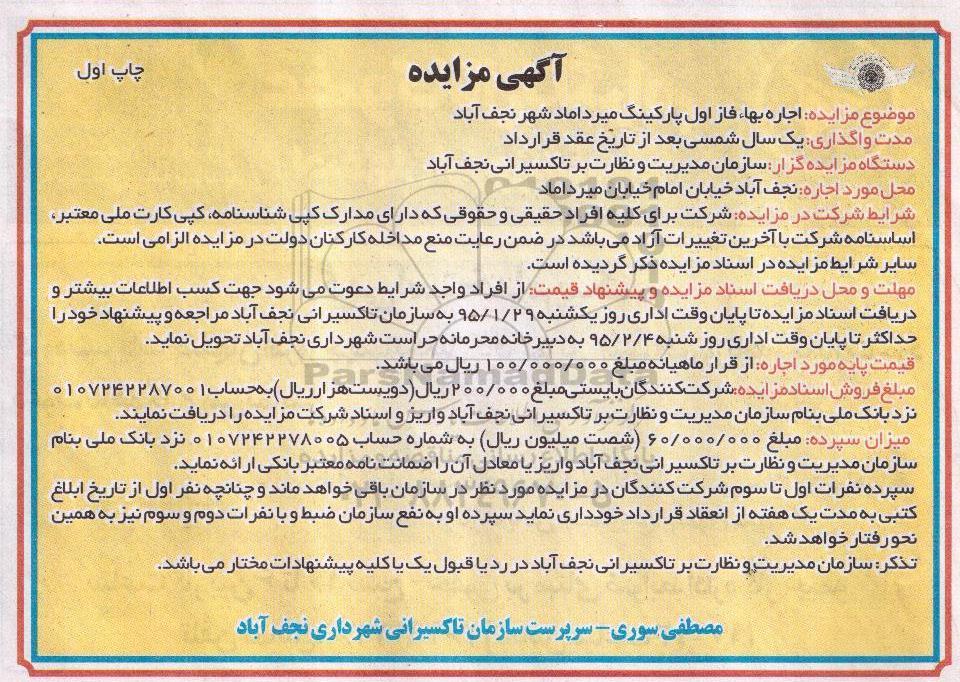 آگهی مزایده
چاپ اول
موضوع مزایده: اجاره بهاء فاز اول پارکینگ میرداماد شهر نجف آباد
مدت واگذاری: یک سال شمسی بعد از تاریخ عقد قرارداد
دستگاه مزایده گزار: سازمان مدیریت و نظارت بر تاکسیرانی نجف آباد
محل مورد اجاره: نجف آباد خیابان امام خیابان میرداماد
شرایط شرکت در مزایده: شرکت برای کلیه افراد حقیقی و حقوقی که دارای مدارک کپی شناسنامه، کپی کارت ملی معتبر،
اساسنامه شرکت با آخرین تغییرات آزاد می باشد در ضمن رعایت منع مداخله کارکنان دولت در مزایده الزامی است.
سایر شرایط مزایده در اسناد مزایده ذکر گردیده است.
مهلت و محل دریافت اسناد مزایده و پیشنهاد قیمت: از افراد واجد شرایط دعوت می شود جهت کسب اطلاعات بیشتر و
دریافت اسناد مزایده تا پایان وقت اداری روز یکشنبه ۹۵/۱/۲۹ به سازمان تاکسیرانی نجف آباد مراجعه و پیشنهاد خود را
حداکثر تا پایان وقت اداری روز شنبه ۹۵/۲/۴ به دبیرخانه محرمانه حراست شهرداری نجف آباد تحویل نماید.
قیمت پایه مورد اجاره: از قرار ماهیانه مبلغ ۱۰۰/۰۰۰/۰۰۰ ریال می باشد.
مبلغ فروش اسناد مزایده: شرکت کنندگان بایستی مبلغ ۲۰۰/۰۰۰ ریال (دویست هزار ریال) به حساب ۰۱۰۷۲۴۲۲۸۷۰۰۱
نزد بانک ملی بنام سازمان مدیریت و نظارت بر تاکسیرانی نجف آباد واریز و اسناد شرکت مزایده را دریافت نمایند.
میزان سپرده: مبلغ ۶۰/۰۰۰/۰۰۰ (شصت میلیون ریال) به شماره حساب ۰۱۰۷۲۴۲۲۷۸۰۰۵ نزد بانک ملی بنام
سازمان مدیریت و نظارت بر تاکسیرانی نجف آباد واریز یا معادل آن را ضمانت نامه معتبر بانکی ارائه نماید.
سپرده نفرات اول تا سوم شرکت کنندگان در مزایده مورد نظر در سازمان باقی خواهد ماند و چنانچه نفر اول از تاریخ ابلاغ
کتبی به مدت یک هفته از انعقاد قرارداد خودداری نماید سپرده او به نفع سازمان ضبط و با نفرات دوم و سوم نیز به همین
نحو رفتار خواهد شد.
تذکر: سازمان مدیریت و نظارت بر تاکسیرانی نجف آباد در رد یا قبول یک یا کلیه پیشنهادات مختار می باشد.
مصطفی سوری – سرپرست سازمان تاکسیرانی شهرداری نجف آباد
ParsNamadData